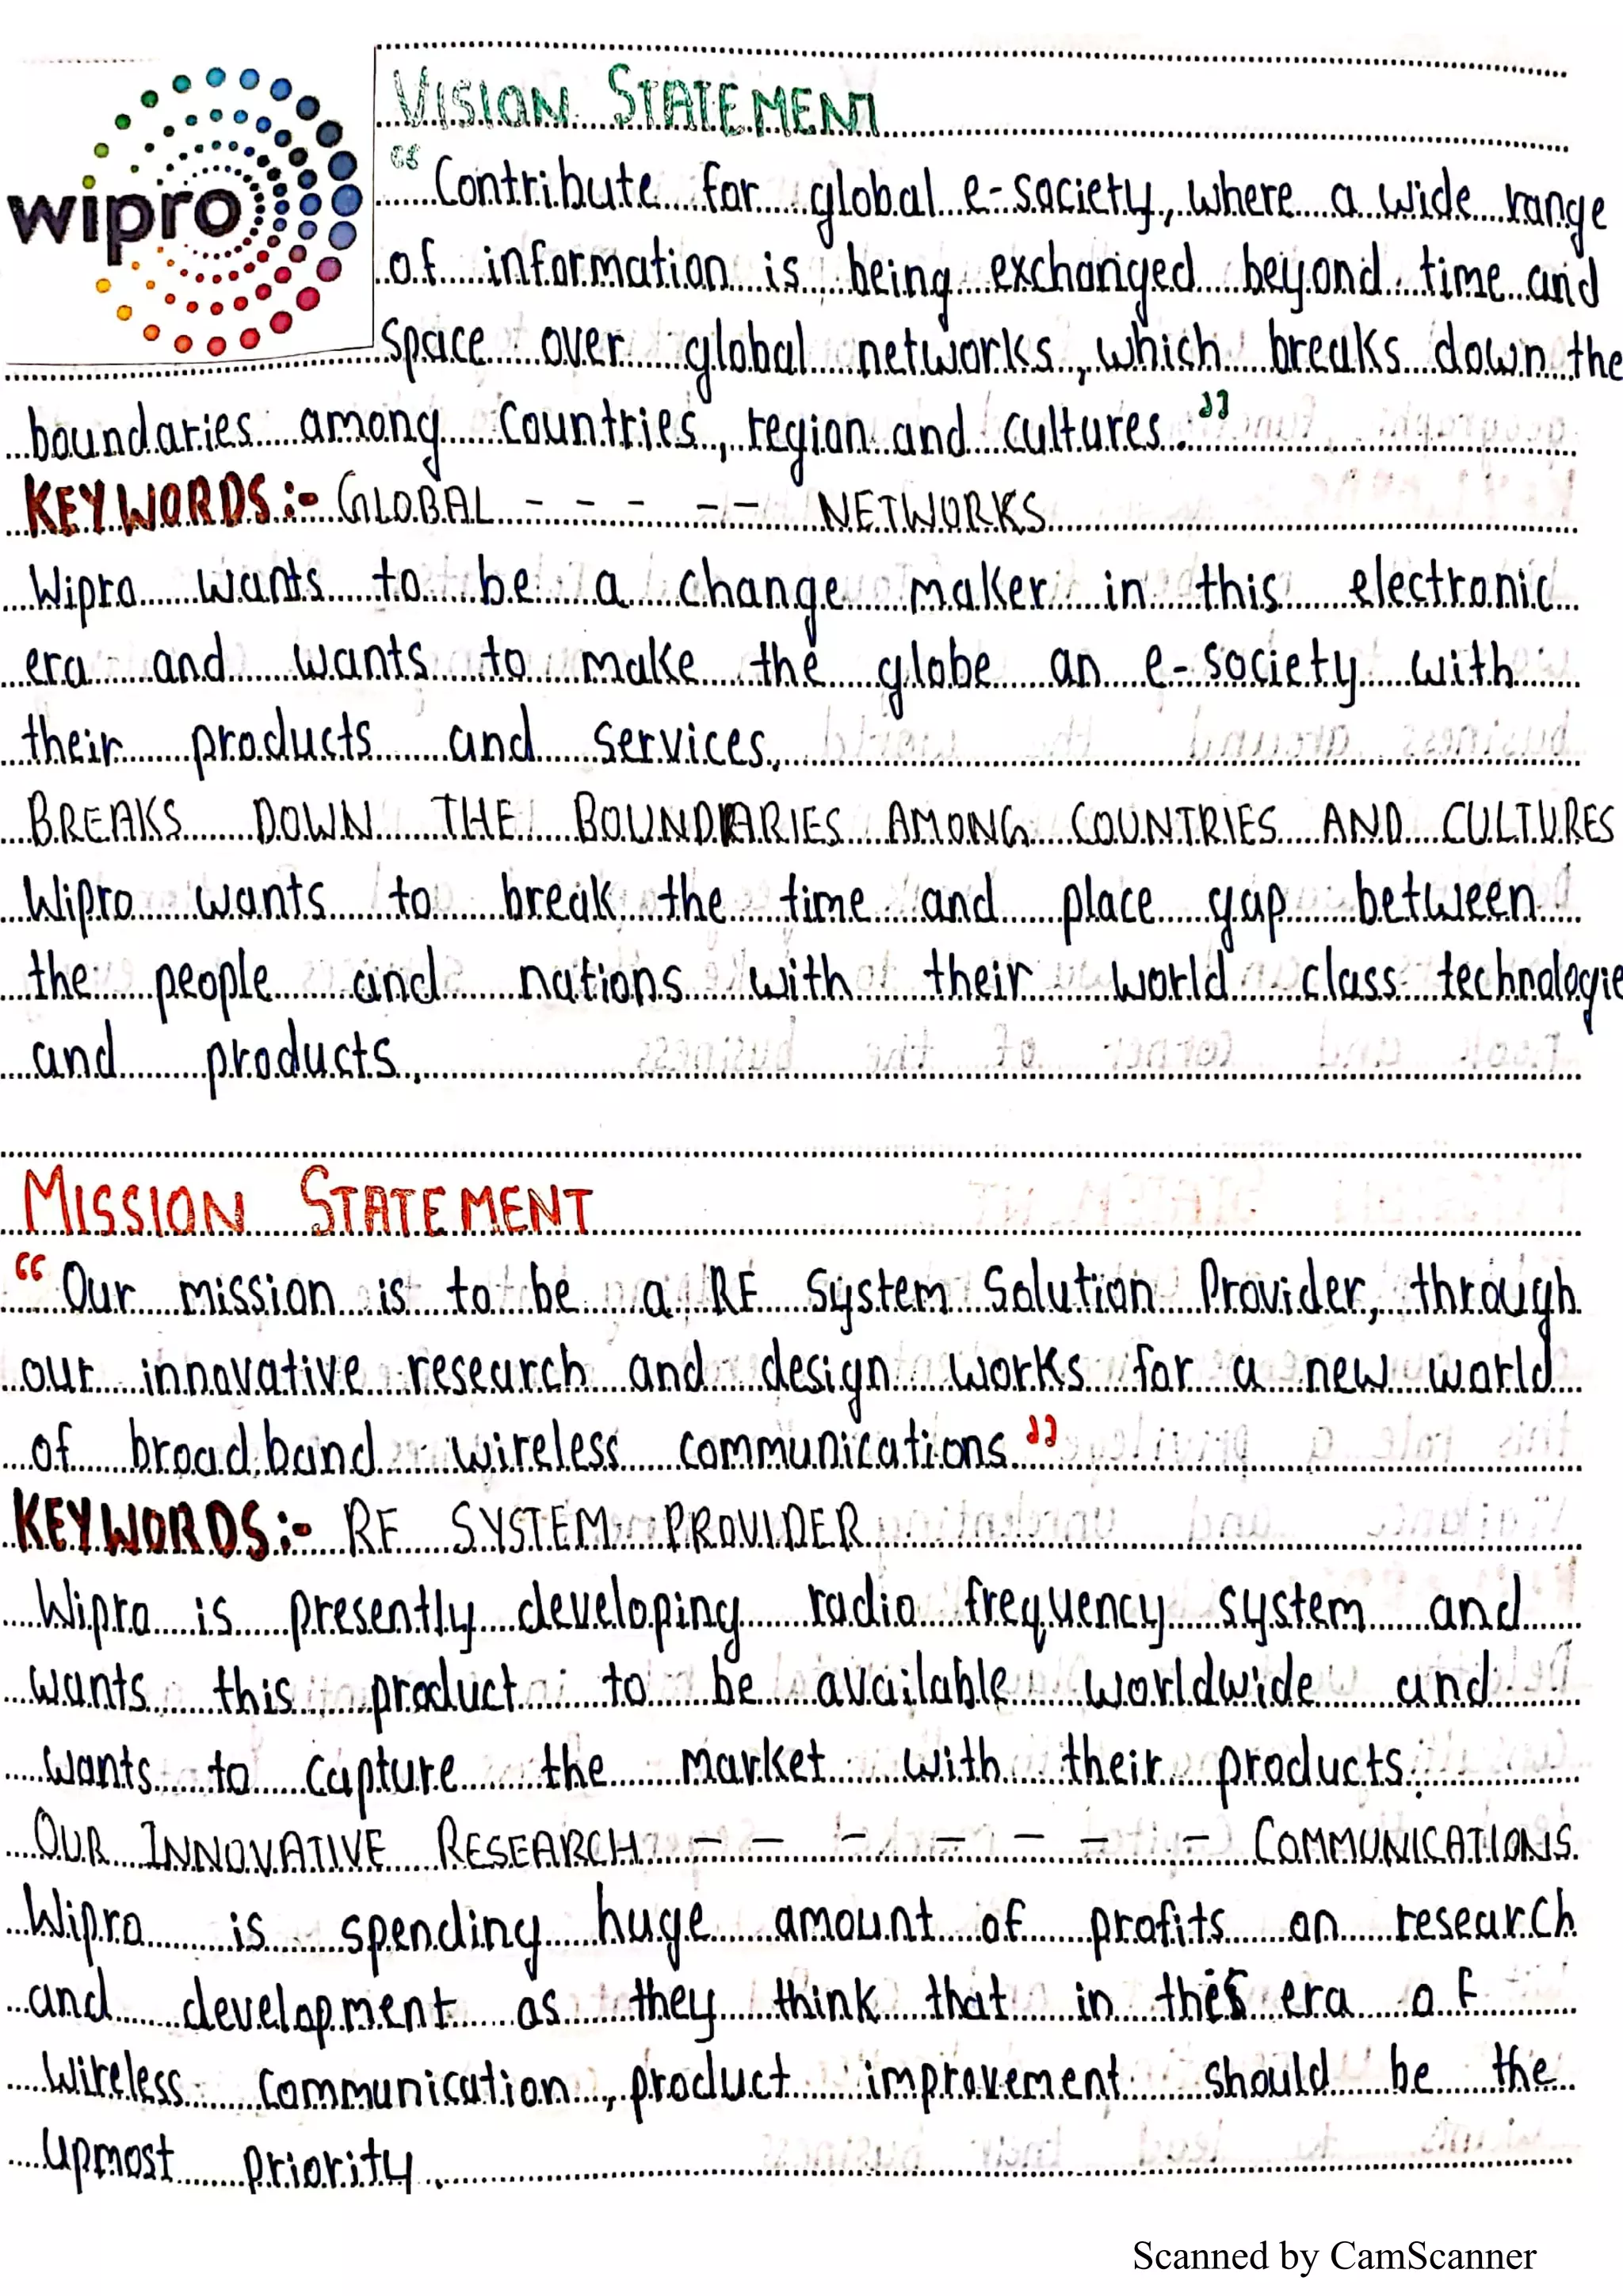 wipro
VISION STATEMENT
“Contribute for global e-society, where a wide range
of information is being exchanged beyond time and
space over global networks, which breaks down the
boundaries among Countries, region and cultures.”
KEYWORDS:- GLOBAL - - - - - NETWORKS
Wipro wants to be a change maker in this electronic
era and wants to make the globe an e-society with
their products and services.
BREAKS DOWN THE BOUNDARIES AMONG COUNTRIES AND CULTURES
Wipro wants to break the time and place gap between
the people and nations with their world class technologie
and products.
MISSION STATEMENT
“Our mission is to be a RF System Solution Provider, through
our innovative research and design works for a new world
of broadband wireless communications”
KEYWORDS:- RF SYSTEM PROVIDER
Wipro is presently developing radio frequency system and
wants this product to be available worldwide and
wants to capture the market with their products.
OUR INNOVATIVE RESEARCH - - - - - - - COMMUNICATIONS.
Wipro is spending huge amount of profits on research
and development as they think that in this era of
Wireless Communication, product improvement should be the
upmost priority.
Scanned by CamScanner